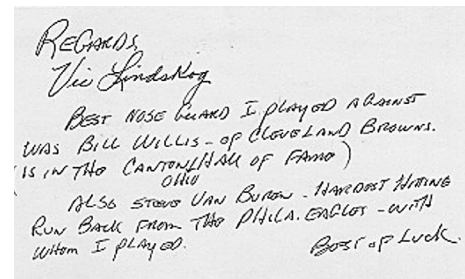 REGARDS,
Vic Lindskog
BEST NOSE GUARD I PLAYED AGAINST
WAS BILL WILLIS - OF CLEVELAND BROWNS.
(IS IN THE CANTON/HALL OF FAME)
OHIO
ALSO STEVE VAN BUREN - HARDEST HITTING
RUN BACK FROM THE PHILA. EAGLES - WITH
WHOM I PLAYED.
BEST OF LUCK.